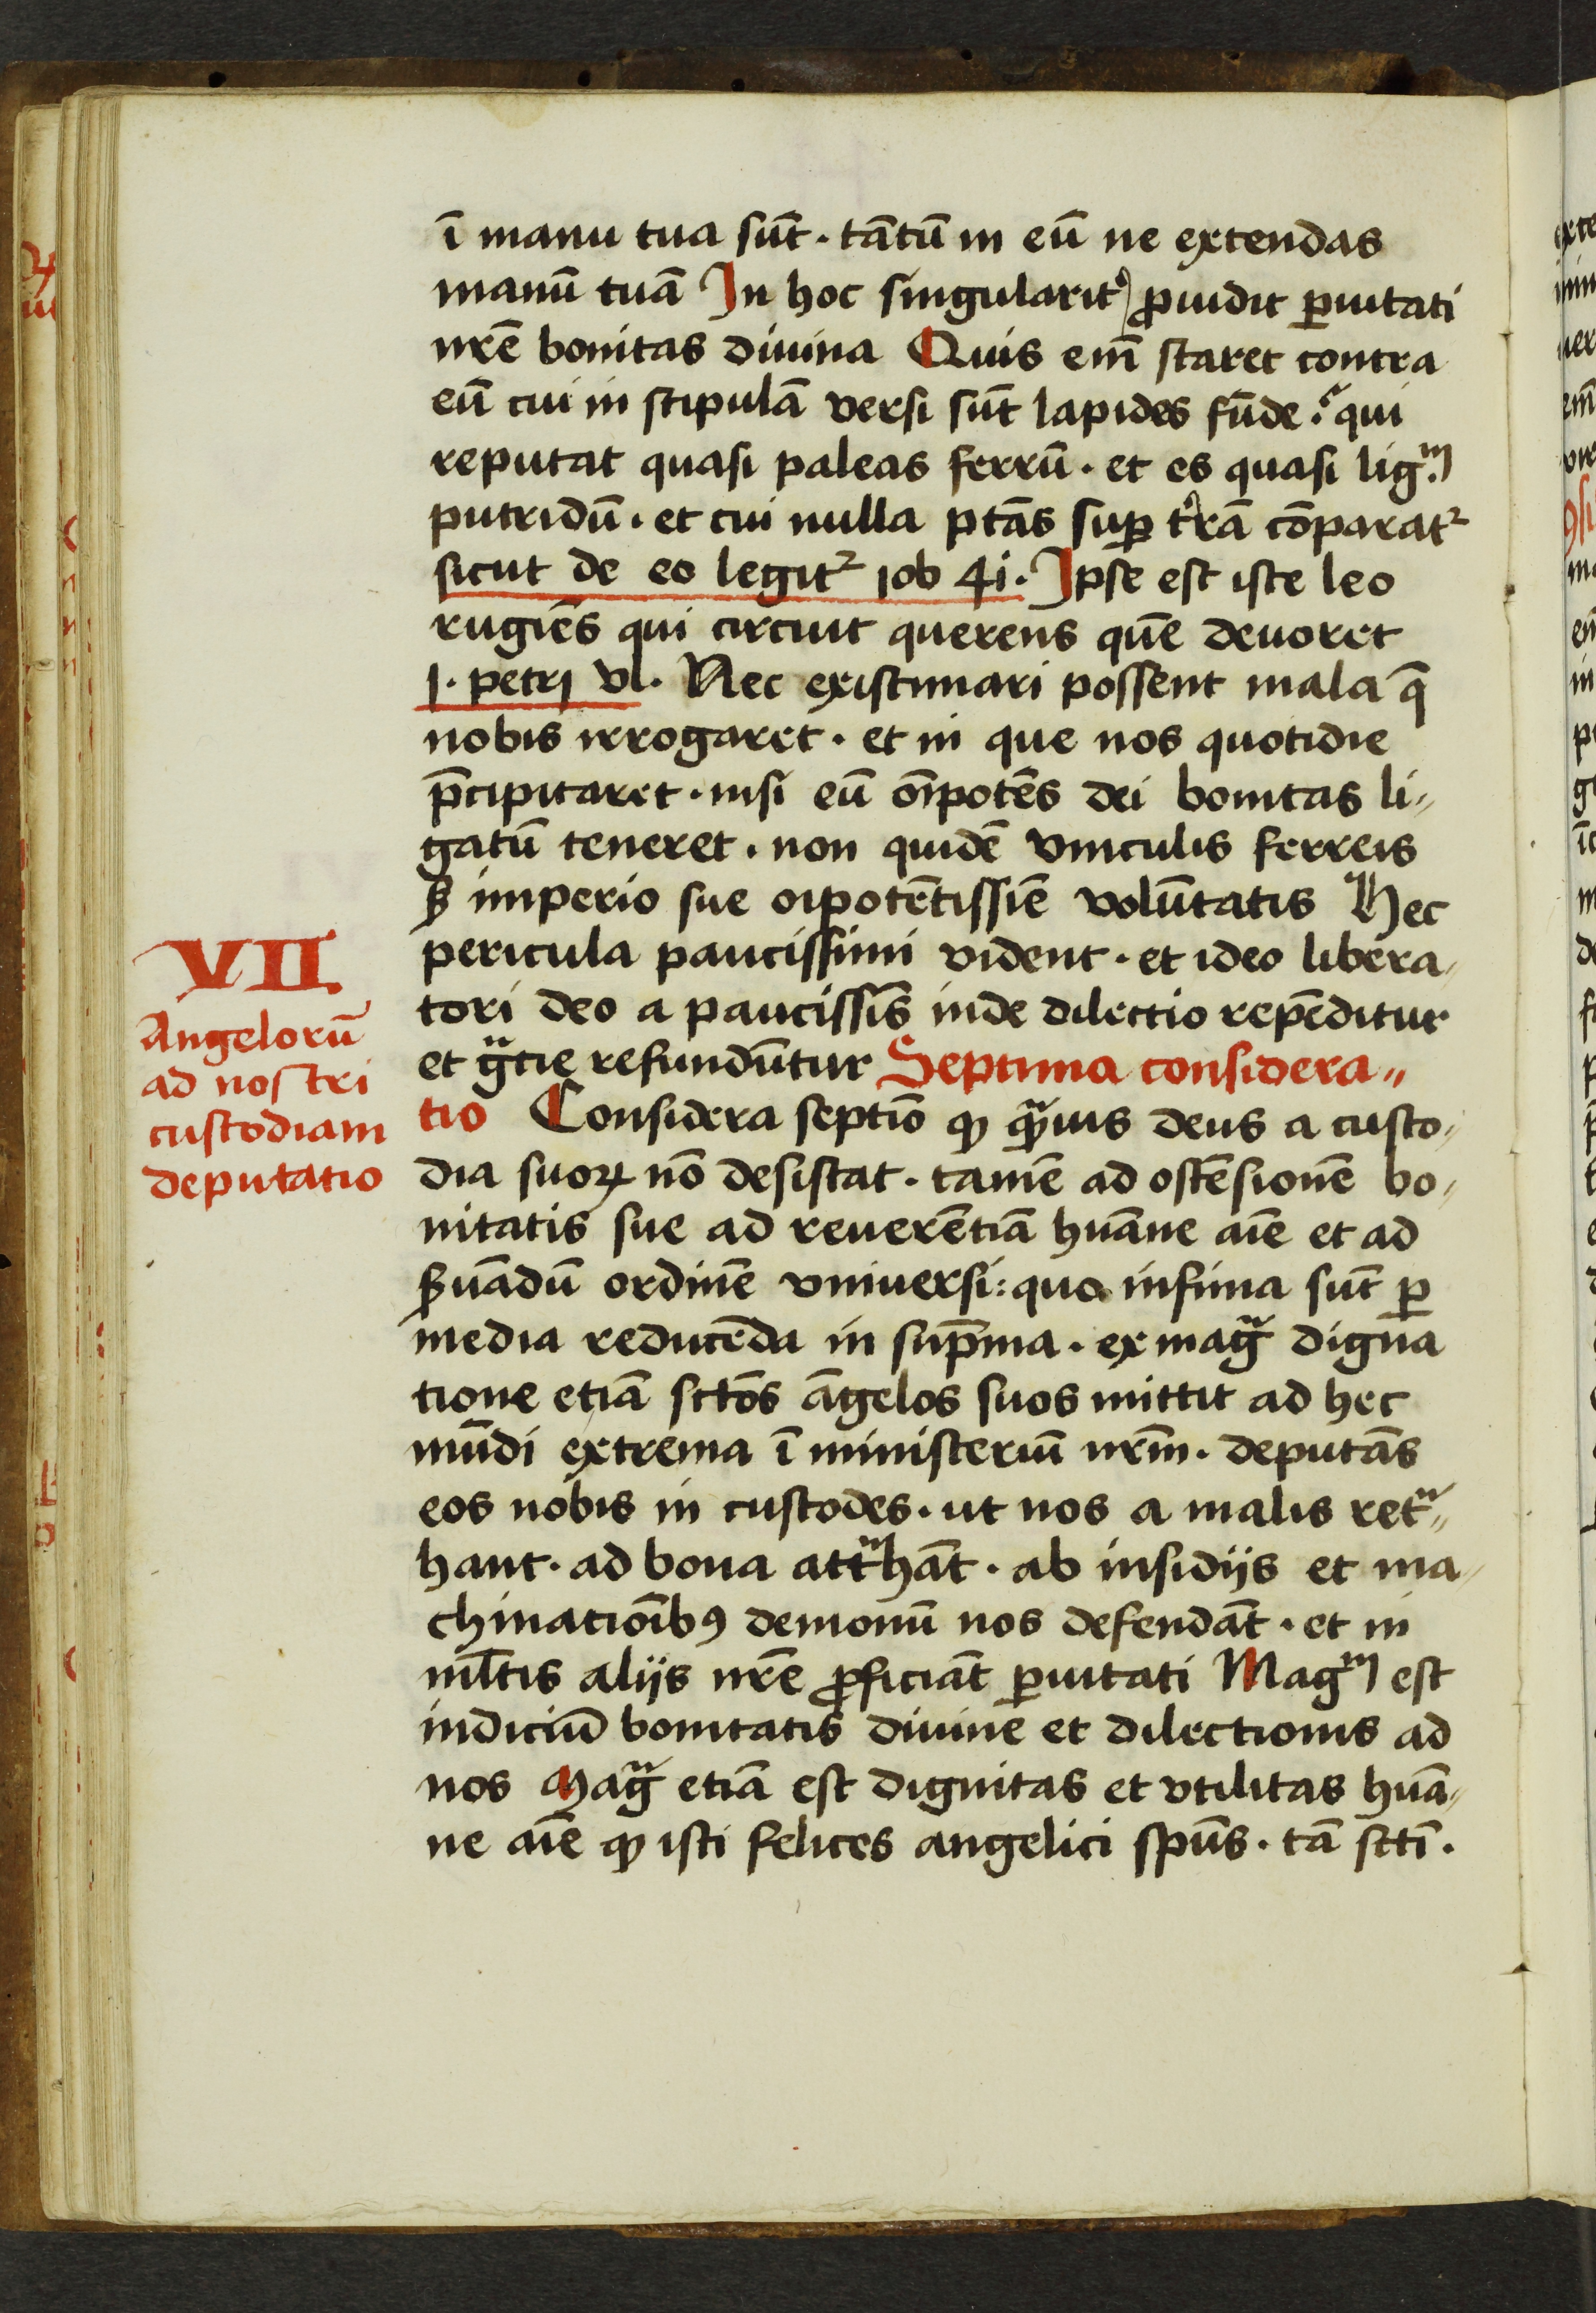 ī manu tua sūt · tātū in eū ne extendas
manū tuā In hoc singularit᷑ ꝓuidit ꝑuitati
nr̄e bonitas diuina Quis em̄ staret contra
eū cui in stipulā versi sūt lapides fūde? qui
reputat quasi paleas ferrū · et es quasi lig.ᵐ
putridū · et cui nulla ptās suꝑ t᷑rā cōparatᷣ
sicut de eo legitᷣ iob 41 · Ipse est iste leo
rugiēs qui circuit querens quē deuoret
1 · petri vl · Nec existimari possent mala q̄
nobis irrogaret · et in que nos quotidie
p̄cipitaret · nisi eū oīpotēs dei bonitas li⸗
gatū teneret · non quidē vinculis ferreis
ꝫ imperio sue oīpotētissīe volūtatis Hec
pericula paucissimi vident · et ideo libera⸗
tori deo a paucissīs inde dilectio repēditur
et gᷓtie refundūtur Septima considera⸗
tio Considera septīo ꝙ qᷓuis deus a custo⸗
dia suoꝝ nō desistat · tamē ad ostēsionē bo⸗
nitatis sue ad reuerētiā huāne aīe et ad
ẜuādū ordinē vniuersi : quo infima sūt ꝑ
media reducēda in sup̄ma · ex magᷓ digna
tione etiā sctōs āgelos suos mittit ad hec
mūdi extrema ī ministeriū nr̄m · deputās
eos nobis in custodes · ut nos a malis retᷓ⸗
hant · ad bona attᷓhāt · ab insidijs et ma⸗
chinatiōibꝰ demonū nos defendāt · et in
ml̄tis alijs nr̄e ꝓficiāt ꝑuitati Mag.ᵐ est
indiciū bonitatis diuine et dilectionis ad
nos Magᷓ etiā est dignitas et vtilitas huā⸗
ne aīe ꝙ isti felices angelici spūs · tā sctī ·
VII
Angelorū
ad nostri
custodiam
deputatio